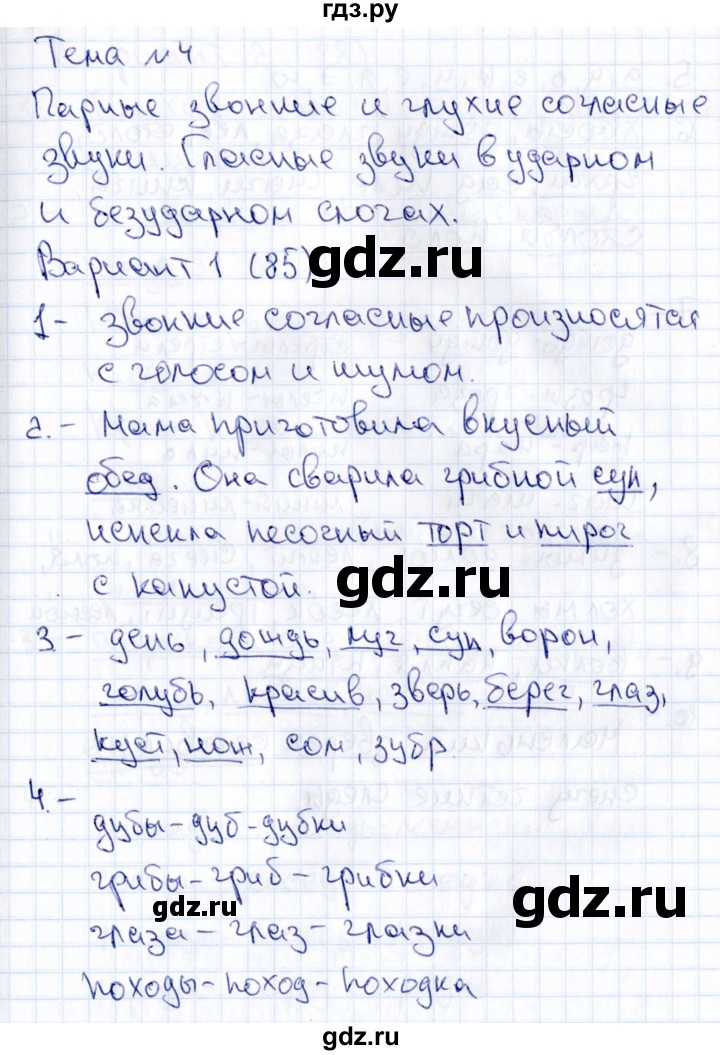 гдз.ру
Тема №4
Парные звонкие и глухие согласные
звуки. Гласные звуки в ударном
и безударном слогах.
Вариант 1 (85)
gdz.ru
1- звонкие согласные произносятся
с голосом и шумом.
2.- Мама приготовила вкусный
обед. Она сварила грибной суп,
испекла песочный торт и пирог
с капустой.
gdz.ru
3.- день, дождь, луг, суп, ворон,
голубь, красив, зверь, берег, глаз,
куст, нож, сом, зубр.
4.-
дубы-дуб-дубки
грибы-гриб-грибки
gdz.ru
gdz.ru
глаза-глаз-глазки
походы-поход-походка
gdz.ru